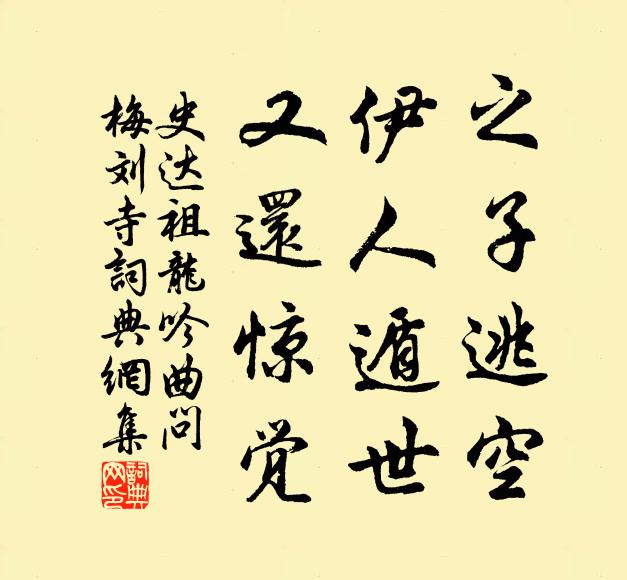 之子逃空
伊人遁世
又還惊觉
史达祖龍吟曲問
梅刘寺詞典網集
詞典
网印